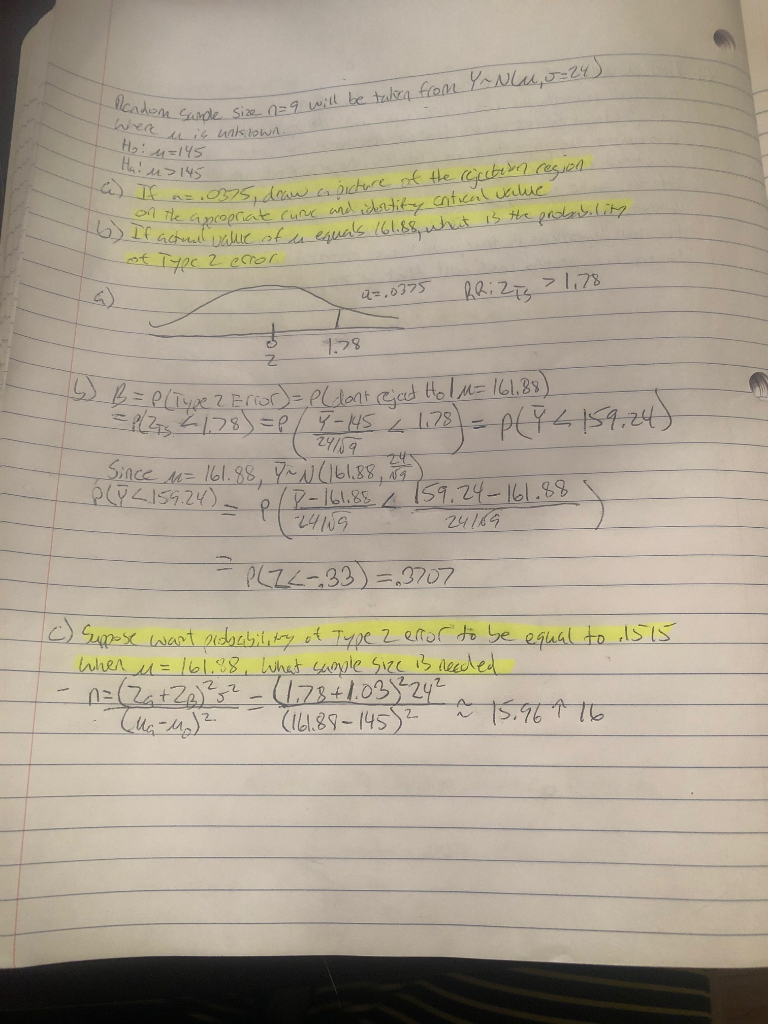 Random sample size n=9 will be taken from Y~N(μ,σ=24)
where μ is unknown.
H₀: μ=145
Ha: μ>145
a) If α=.0375, draw a picture of the rejection region
on the appropriate curve and identify critical value
b) If actual value of μ equals 161.88, what is the probability
of Type 2 error
a)
α=.0375
RR: Z_TS > 1.78
0
1.78
Z
b) B = P(Type 2 Error) = P(dont reject H₀ | μ= 161.88)
= P(Z_TS < 1.78) = P( (Ȳ-145)/(24/√9) < 1.78 ) = P(Ȳ < 159.24)
Since μ= 161.88, Ȳ~N(161.88, 24/√9)
P(Ȳ<159.24) = P( (Ȳ-161.88)/(24/√9) < (159.24-161.88)/(24/√9) )
= P(Z<-.33) = .3707
c) Suppose want probability of Type 2 error to be equal to .1515
when μ = 161.88. What sample size is needed
- n = (Zα+Zβ)²σ²/(μa-μ₀)² = (1.78+1.03)²24²/(161.88-145)² ≈ 15.96 ↑ 16